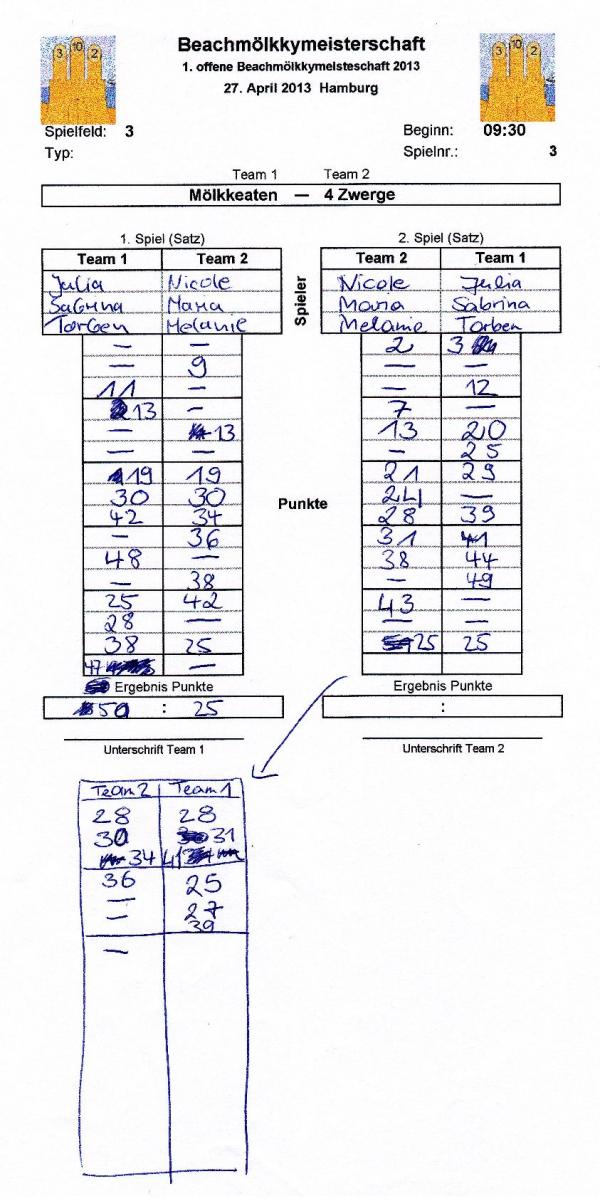 3 10 2
3 10 2
Beachmölkkymeisterschaft
1. offene Beachmölkkymeisteschaft 2013
27. April 2013 Hamburg
Spielfeld: 3
Beginn: 09:30
Typ:
Spielnr.: 3
Team 1 Team 2
Mölkkeaten — 4 Zwerge
1. Spiel (Satz)
Team 1 Team 2
Julia Nicole
Sabrina Maria
Torben Melanie
— —
— 9
11 —
13 —
— 13
— —
19 19
30 30
42 34
— 36
48 —
— 38
25 42
28 —
38 25
47 —
Ergebnis Punkte
50 : 25
Unterschrift Team 1
Spieler
Punkte
2. Spiel (Satz)
Team 2 Team 1
Nicole Julia
Maria Sabrina
Melanie Torben
2 3
— —
— 12
7 —
13 20
— 25
21 29
24 —
28 39
31 41
38 44
— 49
43 —
— —
25 25
Ergebnis Punkte
:
Unterschrift Team 2
Team 2 Team 1
28 28
30 31
34 41
36 25
— 27
— 39
—